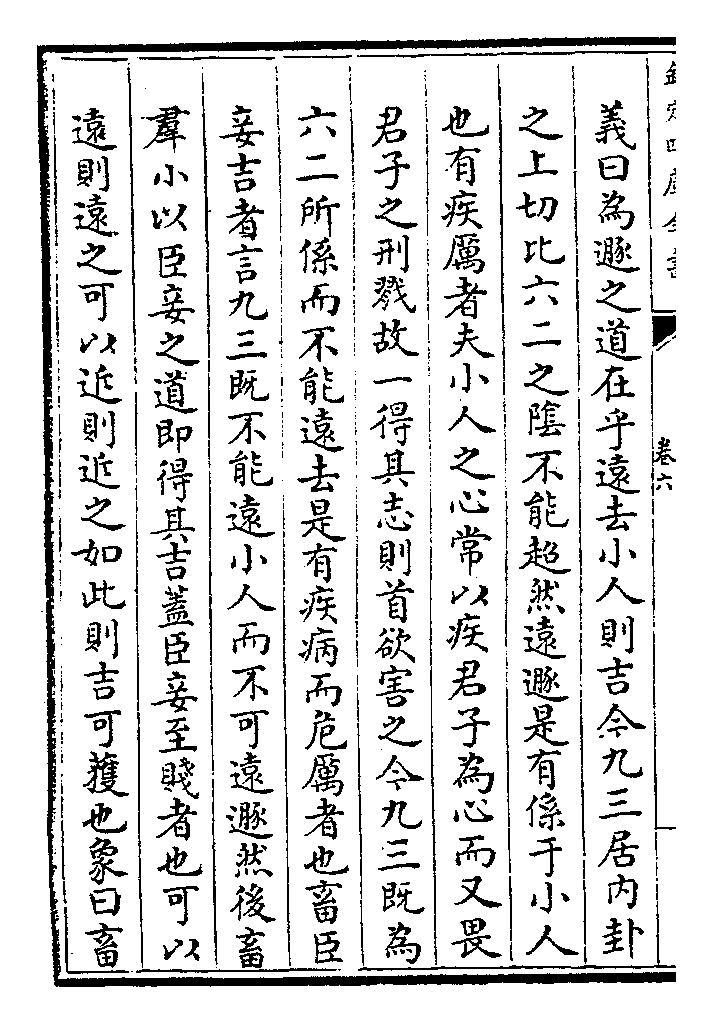 欽定四庫全書
卷六
義曰為遯之道在乎遠去小人則吉今九三居内卦
之上切比六二之隂不能超然遠遯是有係于小人
也有疾厲者夫小人之心常以疾君子為心而又畏
君子之刑戮故一得其志則首欲害之今九三既為
六二所係而不能遠去是有疾病而危厲者也畜臣
妾吉者言九三既不能遠小人而不可遠遯然後畜
羣小以臣妾之道即得其吉葢臣妾至賤者也可以
遠則遠之可以近則近之如此則吉可獲也象曰畜